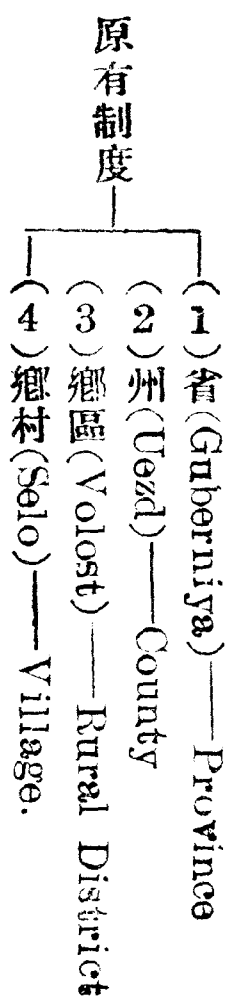 原有制度
（1）省(Guberniya)——Province
（2）州(Uezd)——County
（3）鄉區(Volost)——Rural District
（4）鄉村(Selo)——Village.